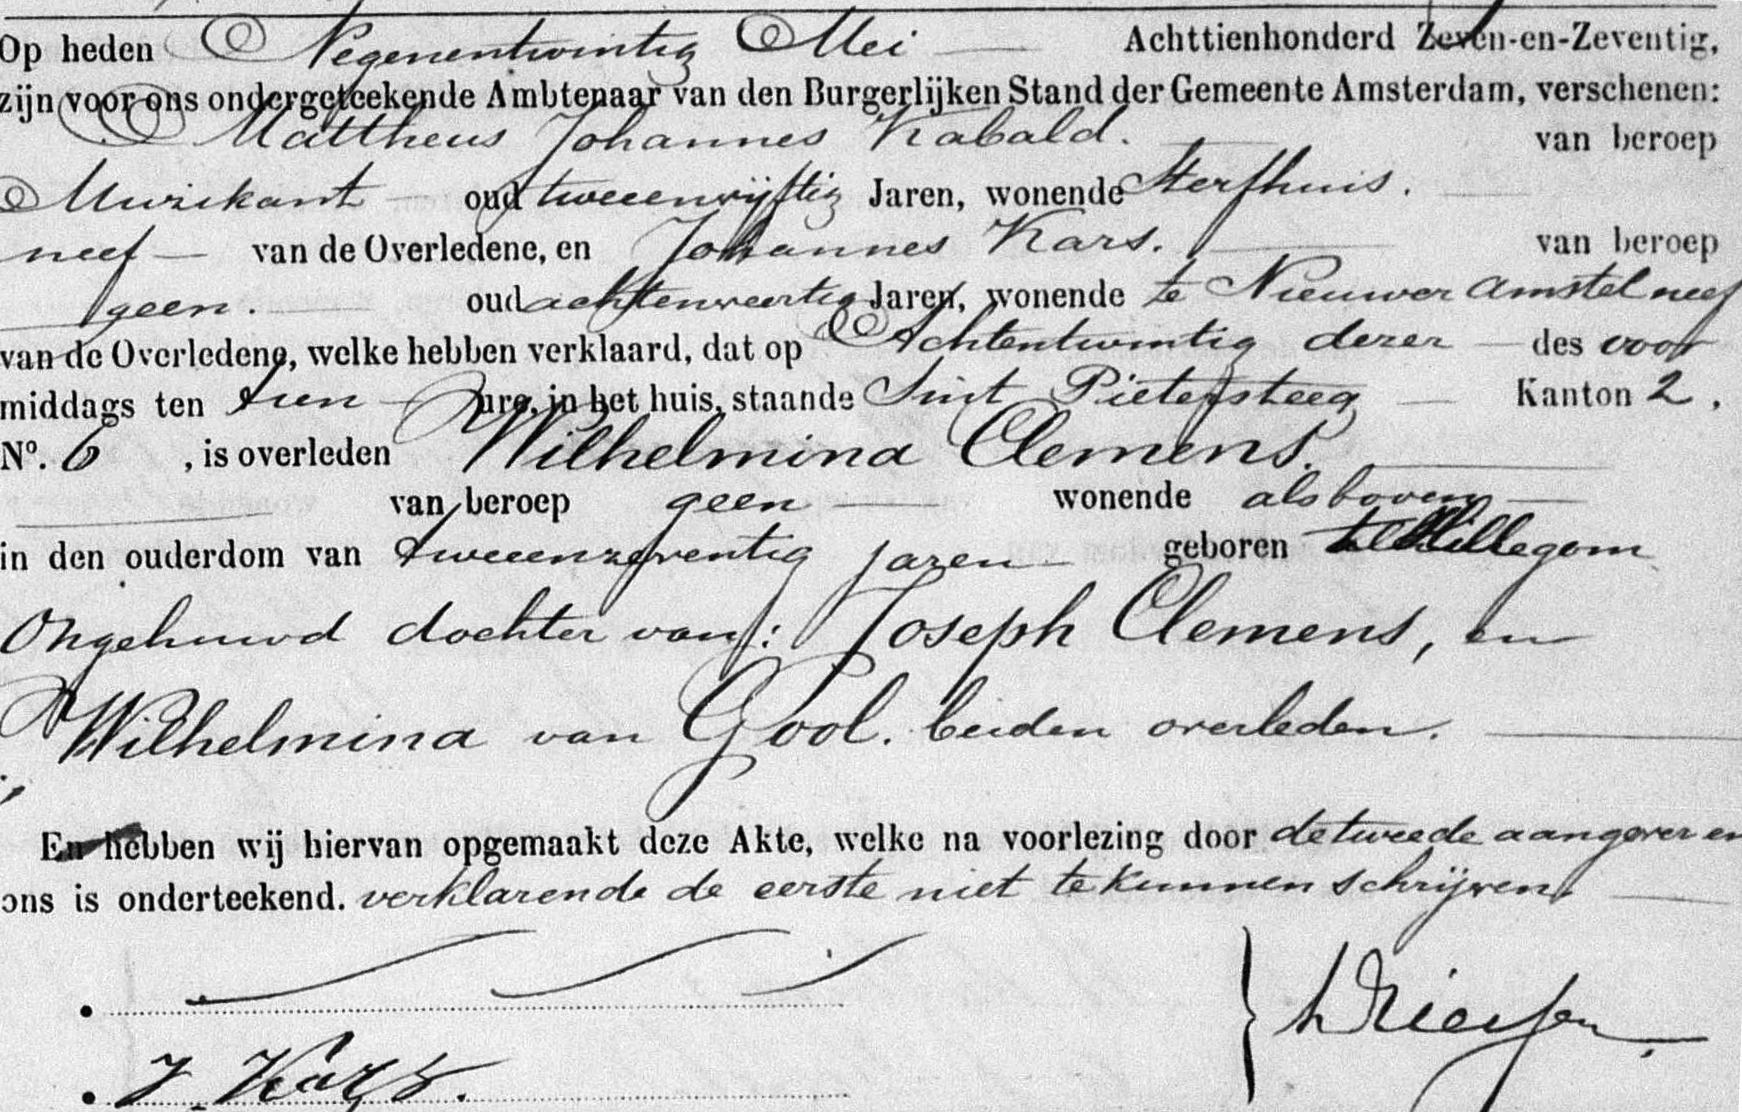 Op heden Negenentwintig Mei Achttienhonderd Zeven-en-Zeventig,
zijn voor ons ondergeteekende Ambtenaar van den Burgerlijken Stand der Gemeente Amsterdam, verschenen:
Mattheus Johannes Kabald. van beroep
Muzikant oud tweeenvijftig Jaren, wonende Sterfhuis.
neef van de Overledene, en Johannes Kars. van beroep
geen. oud achtenveertig Jaren, wonende te Nieuwer Amstel neef
van de Overledene, welke hebben verklaard, dat op Achtentwintig dezer des voor
middags ten tien ure, in het huis, staande Sint Pietersteeg Kanton 2,
No. 6, is overleden Wilhelmina Clemens.
van beroep geen wonende als boven
in den ouderdom van tweeenzeventig jaren geboren te Hillegom
Ongehuwd dochter van: Joseph Clemens, en
Wilhelmina van Gool. beiden overleden.
En hebben wij hiervan opgemaakt deze Akte, welke na voorlezing door de tweede aangever en
ons is onderteekend. verklarende de eerste niet te kunnen schrijven.
J. Kars.